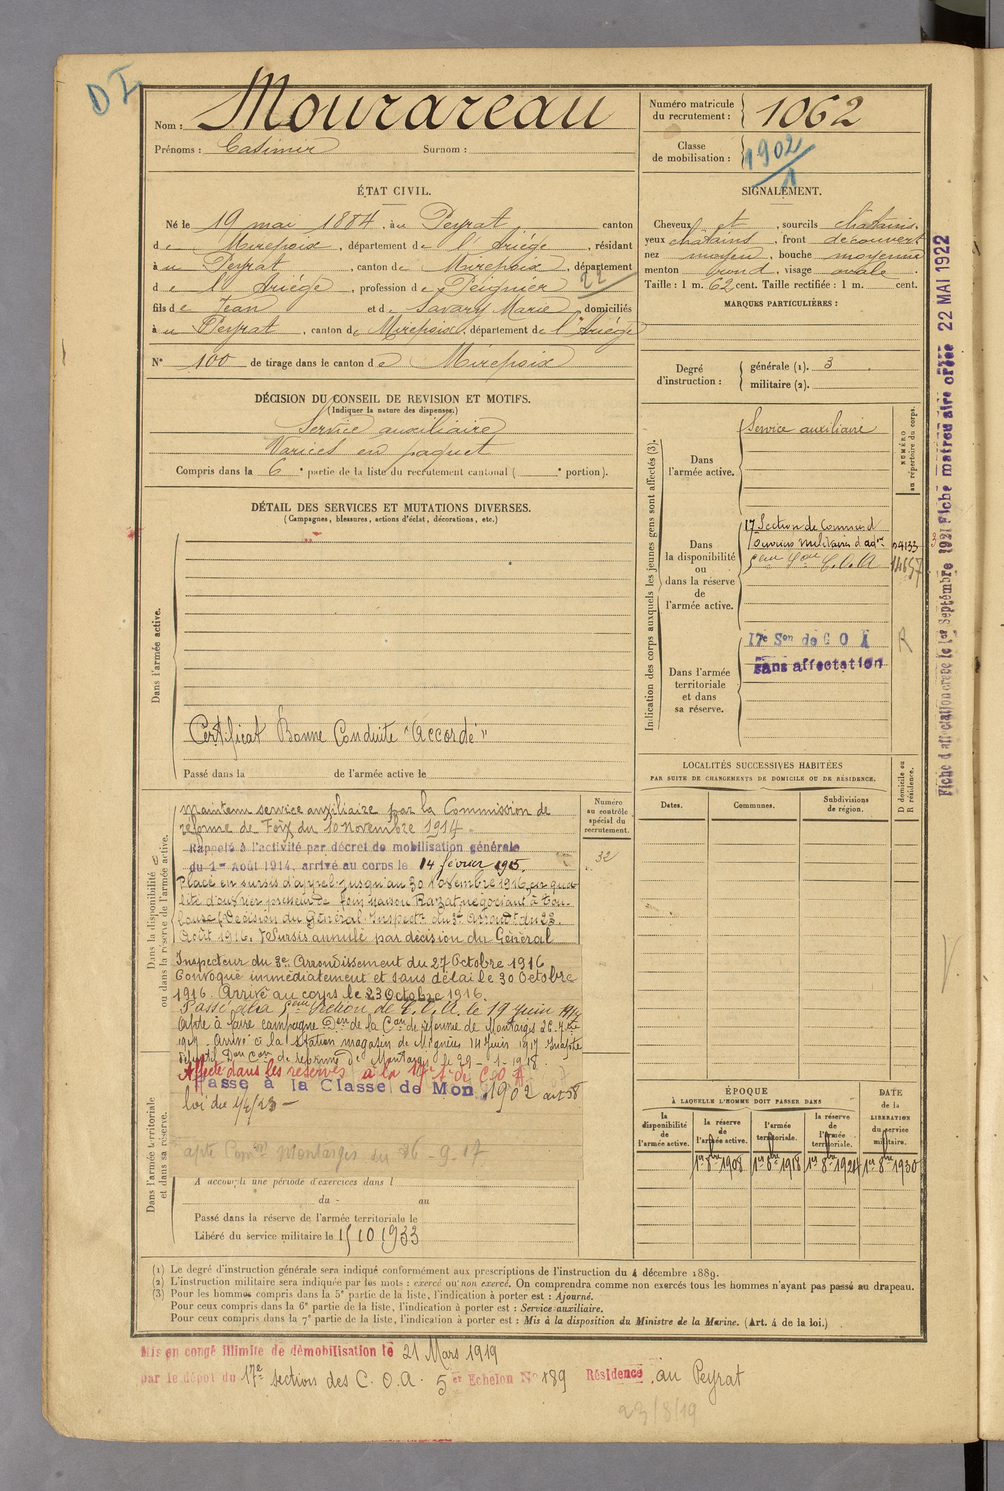 D I
Nom : Mourareau
Prénoms : Casimir Surnom :
Numéro matricule du recrutement : 1062
Classe de mobilisation : 1902
ÉTAT CIVIL.
Né le 19 mai 1884, à u Peyrat canton
d e Mirepoix, département de l'Ariège, résidant
à u Peyrat, canton de Mirepoix, département
d e l'Ariège, profession de Peignier 22
fils de Jean et de Savary Marie, domiciliés
à u Peyrat, canton de Mirepoix, département de l'Ariège
N° 100 de tirage dans le canton d e Mirepoix
SIGNALEMENT.
Cheveux et, sourcils châtains,
yeux châtains, front découvert
nez moyen, bouche moyenne
menton rond, visage ovale.
Taille : 1 m. 62 cent. Taille rectifiée : 1 m. cent.
MARQUES PARTICULIÈRES :
Degré d'instruction : générale (1). 3.
militaire (2).
DÉCISION DU CONSEIL DE REVISION ET MOTIFS.
(Indiquer la nature des dispenses.)
Service auxiliaire
Varices en paquet
Compris dans la 6e partie de la liste du recrutement cantonal ( e portion).
DÉTAIL DES SERVICES ET MUTATIONS DIVERSES.
(Campagnes, blessures, actions d'éclat, décorations, etc.)
Dans l'armée active.
Certificat Bonne Conduite "Accordé"
Passé dans la de l'armée active le
Indication des corps auxquels les jeunes gens sont affectés (3).
NUMÉRO au répertoire du corps.
Dans l'armée active.
Service auxiliaire
Dans la disponibilité ou dans la réserve de l'armée active.
17 Section de Commis et
Ouvriers militaires d'adm.
5eme Son C.O.A
Dans l'armée territoriale et dans sa réserve.
17e Son de C O A
sans affectation
R
Fiche d'affectation créée le 1er Septembre 1921 Fiche matricu aire créée 22 MAI 1922
LOCALITÉS SUCCESSIVES HABITÉES
PAR SUITE DE CHANGEMENTS DE DOMICILE OU DE RÉSIDENCE.
D domicile ou R résidence.
Dates. Communes. Subdivisions de région.
Dans la disponibilité ou dans la réserve de l'armée active.
Numéro au contrôle spécial du recrutement.
32
Maintenu service auxiliaire par la Commission de
réforme de Foix du 10 novembre 1914.
Rappelé à l'activité par décret de mobilisation générale
du 1er Août 1914, arrivé au corps le 14 février 1915.
Placé en sursis d'appel jusqu'au 30 Novembre 1916 en qua-
lité d'ouvrier presseur de foin maison Razat négociant à Tou-
louse (Décision du Général Inspectr du 3e Arrondt du 23
Août 1916. Sursis annulé par décision du Général
Inspecteur du 3e Arrondissement du 27 Octobre 1916
Convoqué immédiatement et sans délai le 30 Octobre
1916. Arrivé au corps le 23 Octobre 1916.
Passé à la 5eme Section de C.O.A. le 19 juin 1917
Apte à faire campagne Don de la Con de réforme de Montargis 26-7bre
1917 - Arrivé à la Station magasin de Mignères 14 Juin 1917 Inapte
définitif Don Con de réforme de Montargis le 29-1-1918
Affecté dans les réserves à la 17e Son de C.O.A
Passé à la Classe de Mon 1902 art 58
loi du 1/4/23 -
Dans l'armée territoriale et dans sa réserve.
apte Comon Montargis du 26-9-17
A accompli une période d'exercices dans l
du - au
Passé dans la réserve de l'armée territoriale le
Libéré du service militaire le 15 10 1933
ÉPOQUE
À LAQUELLE L'HOMME DOIT PASSER DANS
DATE de la LIBÉRATION du service militaire.
la disponibilité de l'armée active.
la réserve de l'armée active.
l'armée territoriale.
la réserve de l'armée territoriale.
1er 8bre 1908
1er 8bre 1918
1er 8bre 1924
1er 8bre 1930
(1) Le degré d'instruction générale sera indiqué conformément aux prescriptions de l'instruction du 4 décembre 1889.
(2) L'instruction militaire sera indiquée par les mots : exercé ou non exercé. On comprendra comme non exercés tous les hommes n'ayant pas passé au drapeau.
(3) Pour les hommes compris dans la 5e partie de la liste, l'indication à porter est : Ajourné.
Pour ceux compris dans la 6e partie de la liste, l'indication à porter est : Service auxiliaire.
Pour ceux compris dans la 7e partie de la liste, l'indication à porter est : Mis à la disposition du Ministre de la Marine. (Art. 4 de la loi.)
Mis en congé illimité de démobilisation le 21 Mars 1919
par le dépôt du 17e section des C.O.A. 5er Echelon N° 189 Résidence au Peyrat
23/8/19